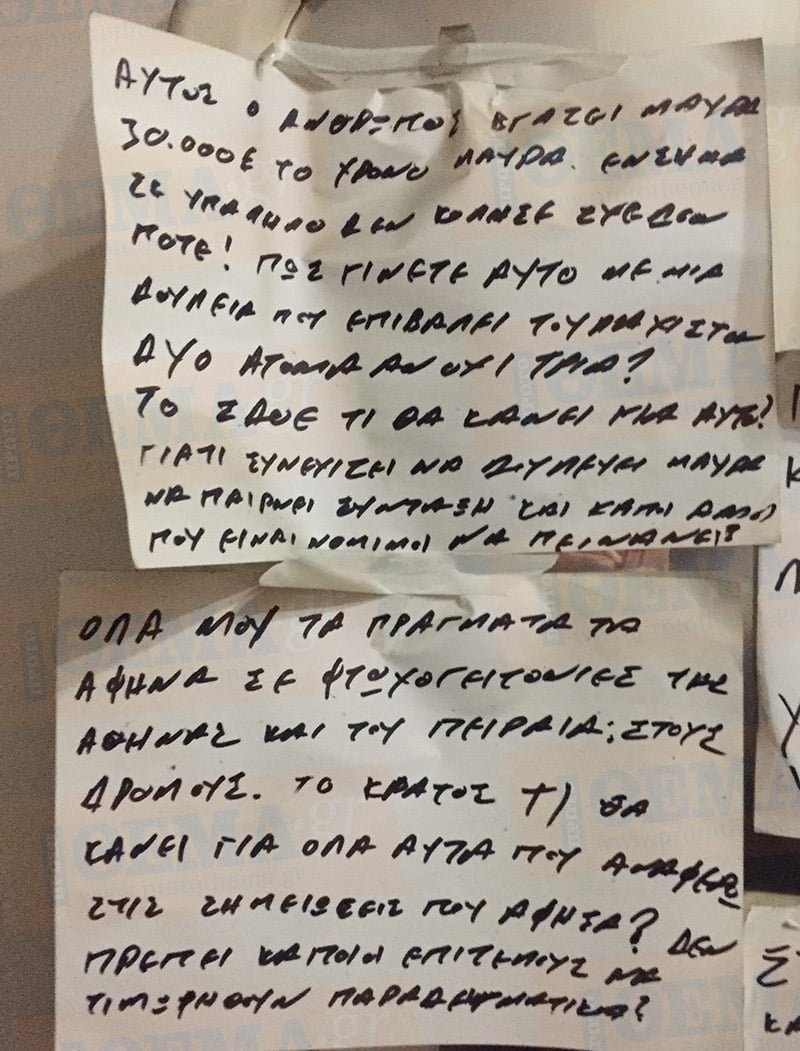 ΑΥΤΟΣ Ο ΑΝΘΡΩΠΟΣ ΒΓΑΖΕΙ ΜΑΥΡΑ
30.000€ ΤΟ ΧΡΟΝΟ ΜΑΥΡΑ. ΕΝΣΗΜΑ
ΣΕ ΥΠΑΛΗΛΟ ΔΕΝ ΚΟΛΗΣΕ ΣΧΕΔΟΝ
ΠΟΤΕ! ΠΩΣ ΓΙΝΕΤΕ ΑΥΤΟ ΜΕ ΜΙΑ
ΔΟΥΛΕΙΑ ΠΟΥ ΕΠΙΒΑΛΕΙ ΤΟΥΛΑΧΙΣΤΟΝ
ΔΥΟ ΑΤΟΜΑ ΑΝ ΟΧΙ ΤΡΙΑ?
ΤΟ ΣΔΟΕ ΤΙ ΘΑ ΚΑΝΕΙ ΓΙΑ ΑΥΤΟ?
ΓΙΑΤΙ ΣΥΝΕΧΙΖΕΙ ΝΑ ΔΟΥΛΕΥΕΙ ΜΑΥΡΑ
ΝΑ ΠΑΙΡΝΕΙ ΣΥΝΤΑΞΗ ΚΑΙ ΚΑΠΟΙ ΑΛΛΟΙ
ΠΟΥ ΕΙΝΑΙ ΝΟΜΙΜΟΙ ΝΑ ΠΕΙΝΑΝΕ!?
ΟΛΑ ΜΟΥ ΤΑ ΠΡΑΓΜΑΤΑ ΤΑ
ΑΦΗΝΑ ΣΕ ΦΤΩΧΟΓΕΙΤΟΝΙΕΣ ΤΗΣ
ΑΘΗΝΑΣ ΚΑΙ ΤΟΥ ΠΕΙΡΑΙΑ; ΣΤΟΥΣ
ΔΡΟΜΟΥΣ. ΤΟ ΚΡΑΤΟΣ ΤΙ ΘΑ
ΚΑΝΕΙ ΓΙΑ ΟΛΑ ΑΥΤΑ ΠΟΥ ΑΝΑΦΕΡΩ
ΣΤΙΣ ΣΗΜΕΙΩΣΕΙΣ ΠΟΥ ΑΦΗΣΑ? ΔΕΝ
ΠΡΕΠΕΙ ΚΑΠΟΙΟΙ ΕΠΙΤΕΛΟΥΣ ΝΑ
ΤΙΜΩΡΗΘΟΥΝ ΠΑΡΑΔΕΙΓΜΑΤΙΚΑ?